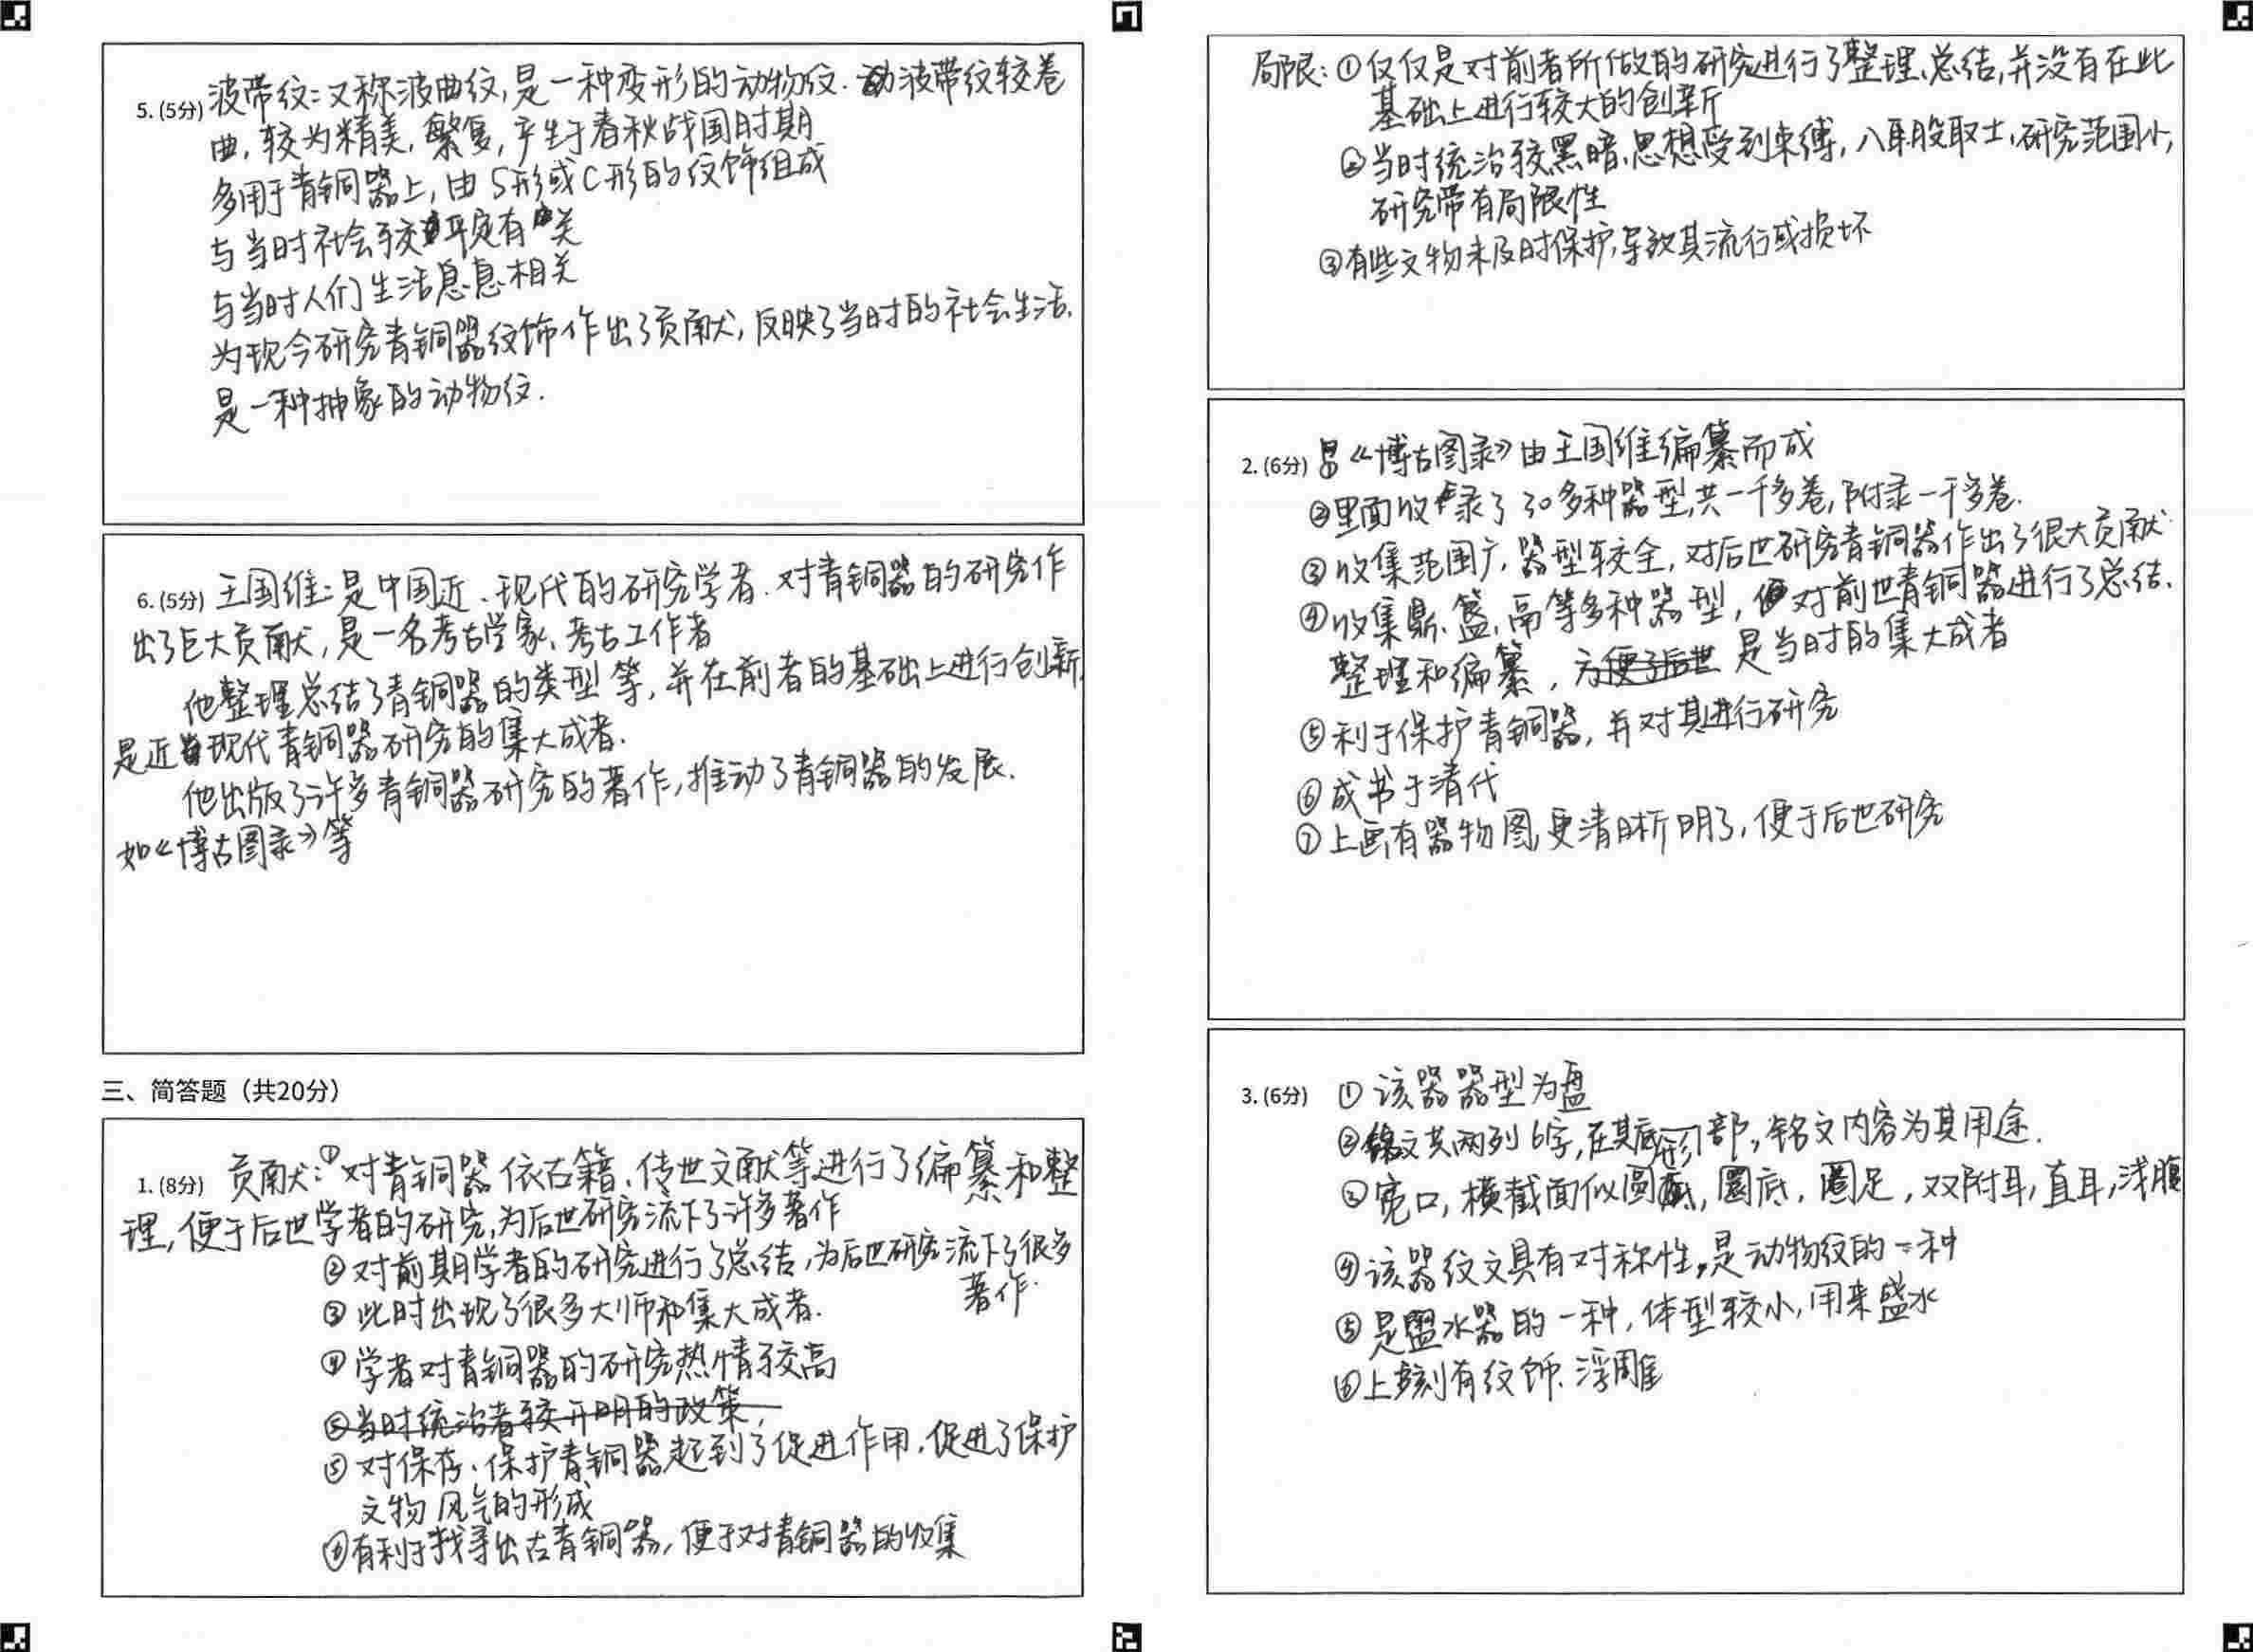 5.(5分) 波带纹:又称波曲纹,是一种变形的动物纹.波带纹较卷
曲,较为精美,繁复,产生于春秋战国时期
多用于青铜器上,由S形或C形的纹饰组成
与当时社会较平定有关
与当时人们生活息息相关
为现今研究青铜器纹饰作出了贡献,反映了当时的社会生活.
是一种抽象的动物纹.
6.(5分) 王国维:是中国近、现代的研究学者.对青铜器的研究作
出了巨大贡献,是一名考古学家、考古工作者
他整理总结了青铜器的类型等,并在前者的基础上进行创新,
是近现代青铜器研究的集大成者.
他出版了许多青铜器研究的著作,推动了青铜器的发展.
如《博古图录》等
三、简答题(共20分)
1.(8分) 贡献:①对青铜器依古籍、传世文献等进行了编纂和整
理,便于后世学者的研究,为后世研究流下了许多著作
②对前期学者的研究进行了总结,为后世研究流下了很多
著作.
③此时出现了很多大师和集大成者.
④学者对青铜器的研究热情较高
⑤当时统治者较开明的政策,
⑤对保存、保护青铜器起到了促进作用,促进了保护
文物风气的形成
⑥有利于找寻出古青铜器,便于对青铜器的收集
局限:①仅仅是对前者所做的研究进行了整理、总结,并没有在此
基础上进行较大的创新
②当时统治较黑暗,思想受到束缚,八股取士,研究范围小,
研究带有局限性
③有些文物未及时保护,导致其流行或损坏
2.(6分) ①《博古图录》由王国维编纂而成
②里面收录了30多种器型,共一千多卷,附录一千多卷.
③收集范围广,器型较全,对后世研究青铜器作出了很大贡献.
④收集鼎、簋、鬲等多种器型,对前世青铜器进行了总结、
整理和编纂,方便了后世 是当时的集大成者
⑤利于保护青铜器,并对其进行研究
⑥成书于清代
⑦上画有器物图,更清晰明了,便于后世研究
3.(6分) ①该器器型为盘
②铭文共两列6字,在其底部,铭文内容为其用途.
③宽口,横截面似圆形,圜底,圈足,双附耳,直耳,浅腹
④该器纹文具有对称性,是动物纹的一种
⑤是盥水器的一种,体型较小,用来盛水
⑥上刻有纹饰.浮雕